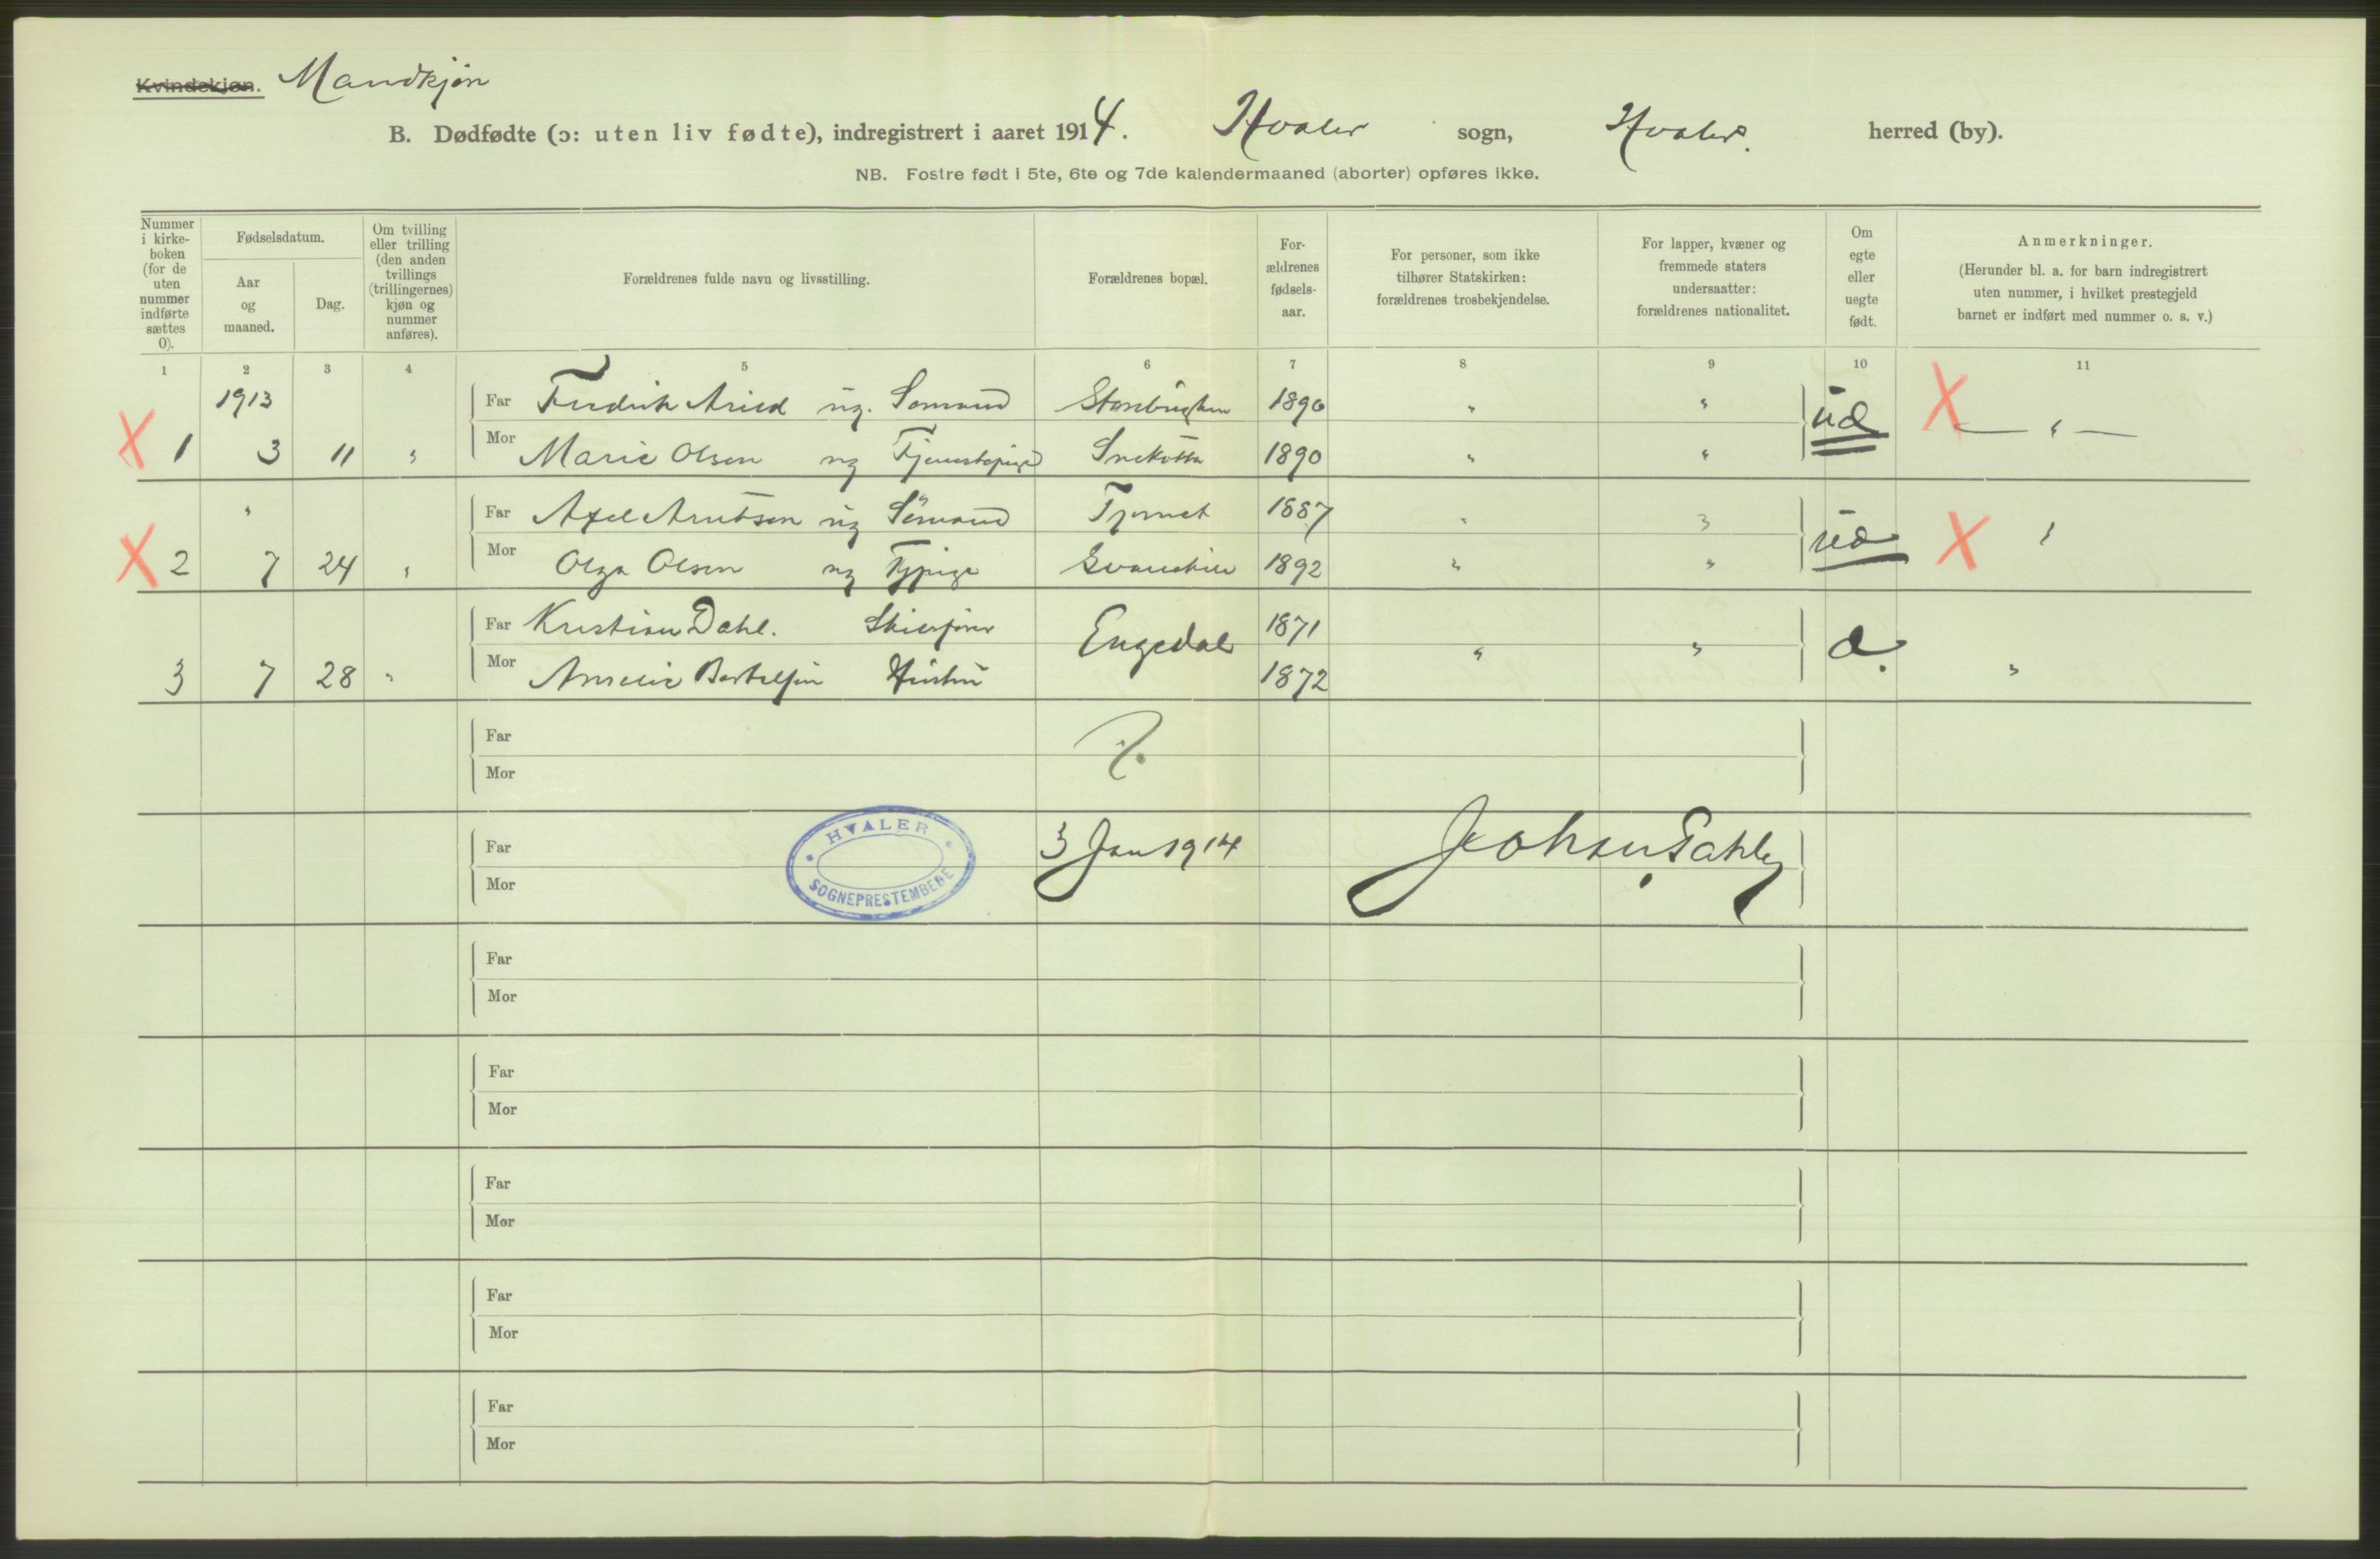 Kvindekjøn. Mandkjøn
B. Dødfødte (ɔ: uten liv fødte), indregistrert i aaret 1914. Hvaler sogn, Hvaler. herred (by).
NB. Fostre født i 5te, 6te og 7de kalendermaaned (aborter) opføres ikke.
Nummer
i kirke-
boken
(for de
uten
nummer
indførte
sættes
0).
Fødselsdatum.
Aar
og
maaned.
Dag.
Om tvilling
eller trilling
(den anden
tvillings
(trillingernes)
kjøn og
nummer
anføres).
Forældrenes fulde navn og livsstilling.
Forældrenes bopæl.
For-
ældrenes
fødsels-
aar.
For personer, som ikke
tilhører Statskirken:
forældrenes trosbekjendelse.
For lapper, kvæner og
fremmede staters
undersaatter:
forældrenes nationalitet.
Om
egte
eller
uegte
født.
Anmerkninger.
(Herunder bl. a. for barn indregistrert
uten nummer, i hvilket prestegjeld
barnet er indført med nummer o. s. v.)
1 2 3 4 5 6 7 8 9 10 11
1913 Far Fredrik ug. Sømand 1890 " "
X 1 3 11 " Mor Marie Olsen ug Tjenestepige 1890 " " ud X — " —
" Far Axel Arntsen ug Sømand Tjernet 1887 "
X 2 7 24 " Mor Olga Olsen ug Tjpige 1892 " " ud X "
Far Kristian Dahl. Engedal 1871
3 7 28 " Mor Amelie Bertelsen Hustru 1872 " " d. "
Far
Mor
Far 3 Jan 1914 Johan
Mor
HVALER
SOGNEPRESTEMBEDE
Far
Mor
Far
Mor
Far
Mor
Far
Mor
Far
Mor